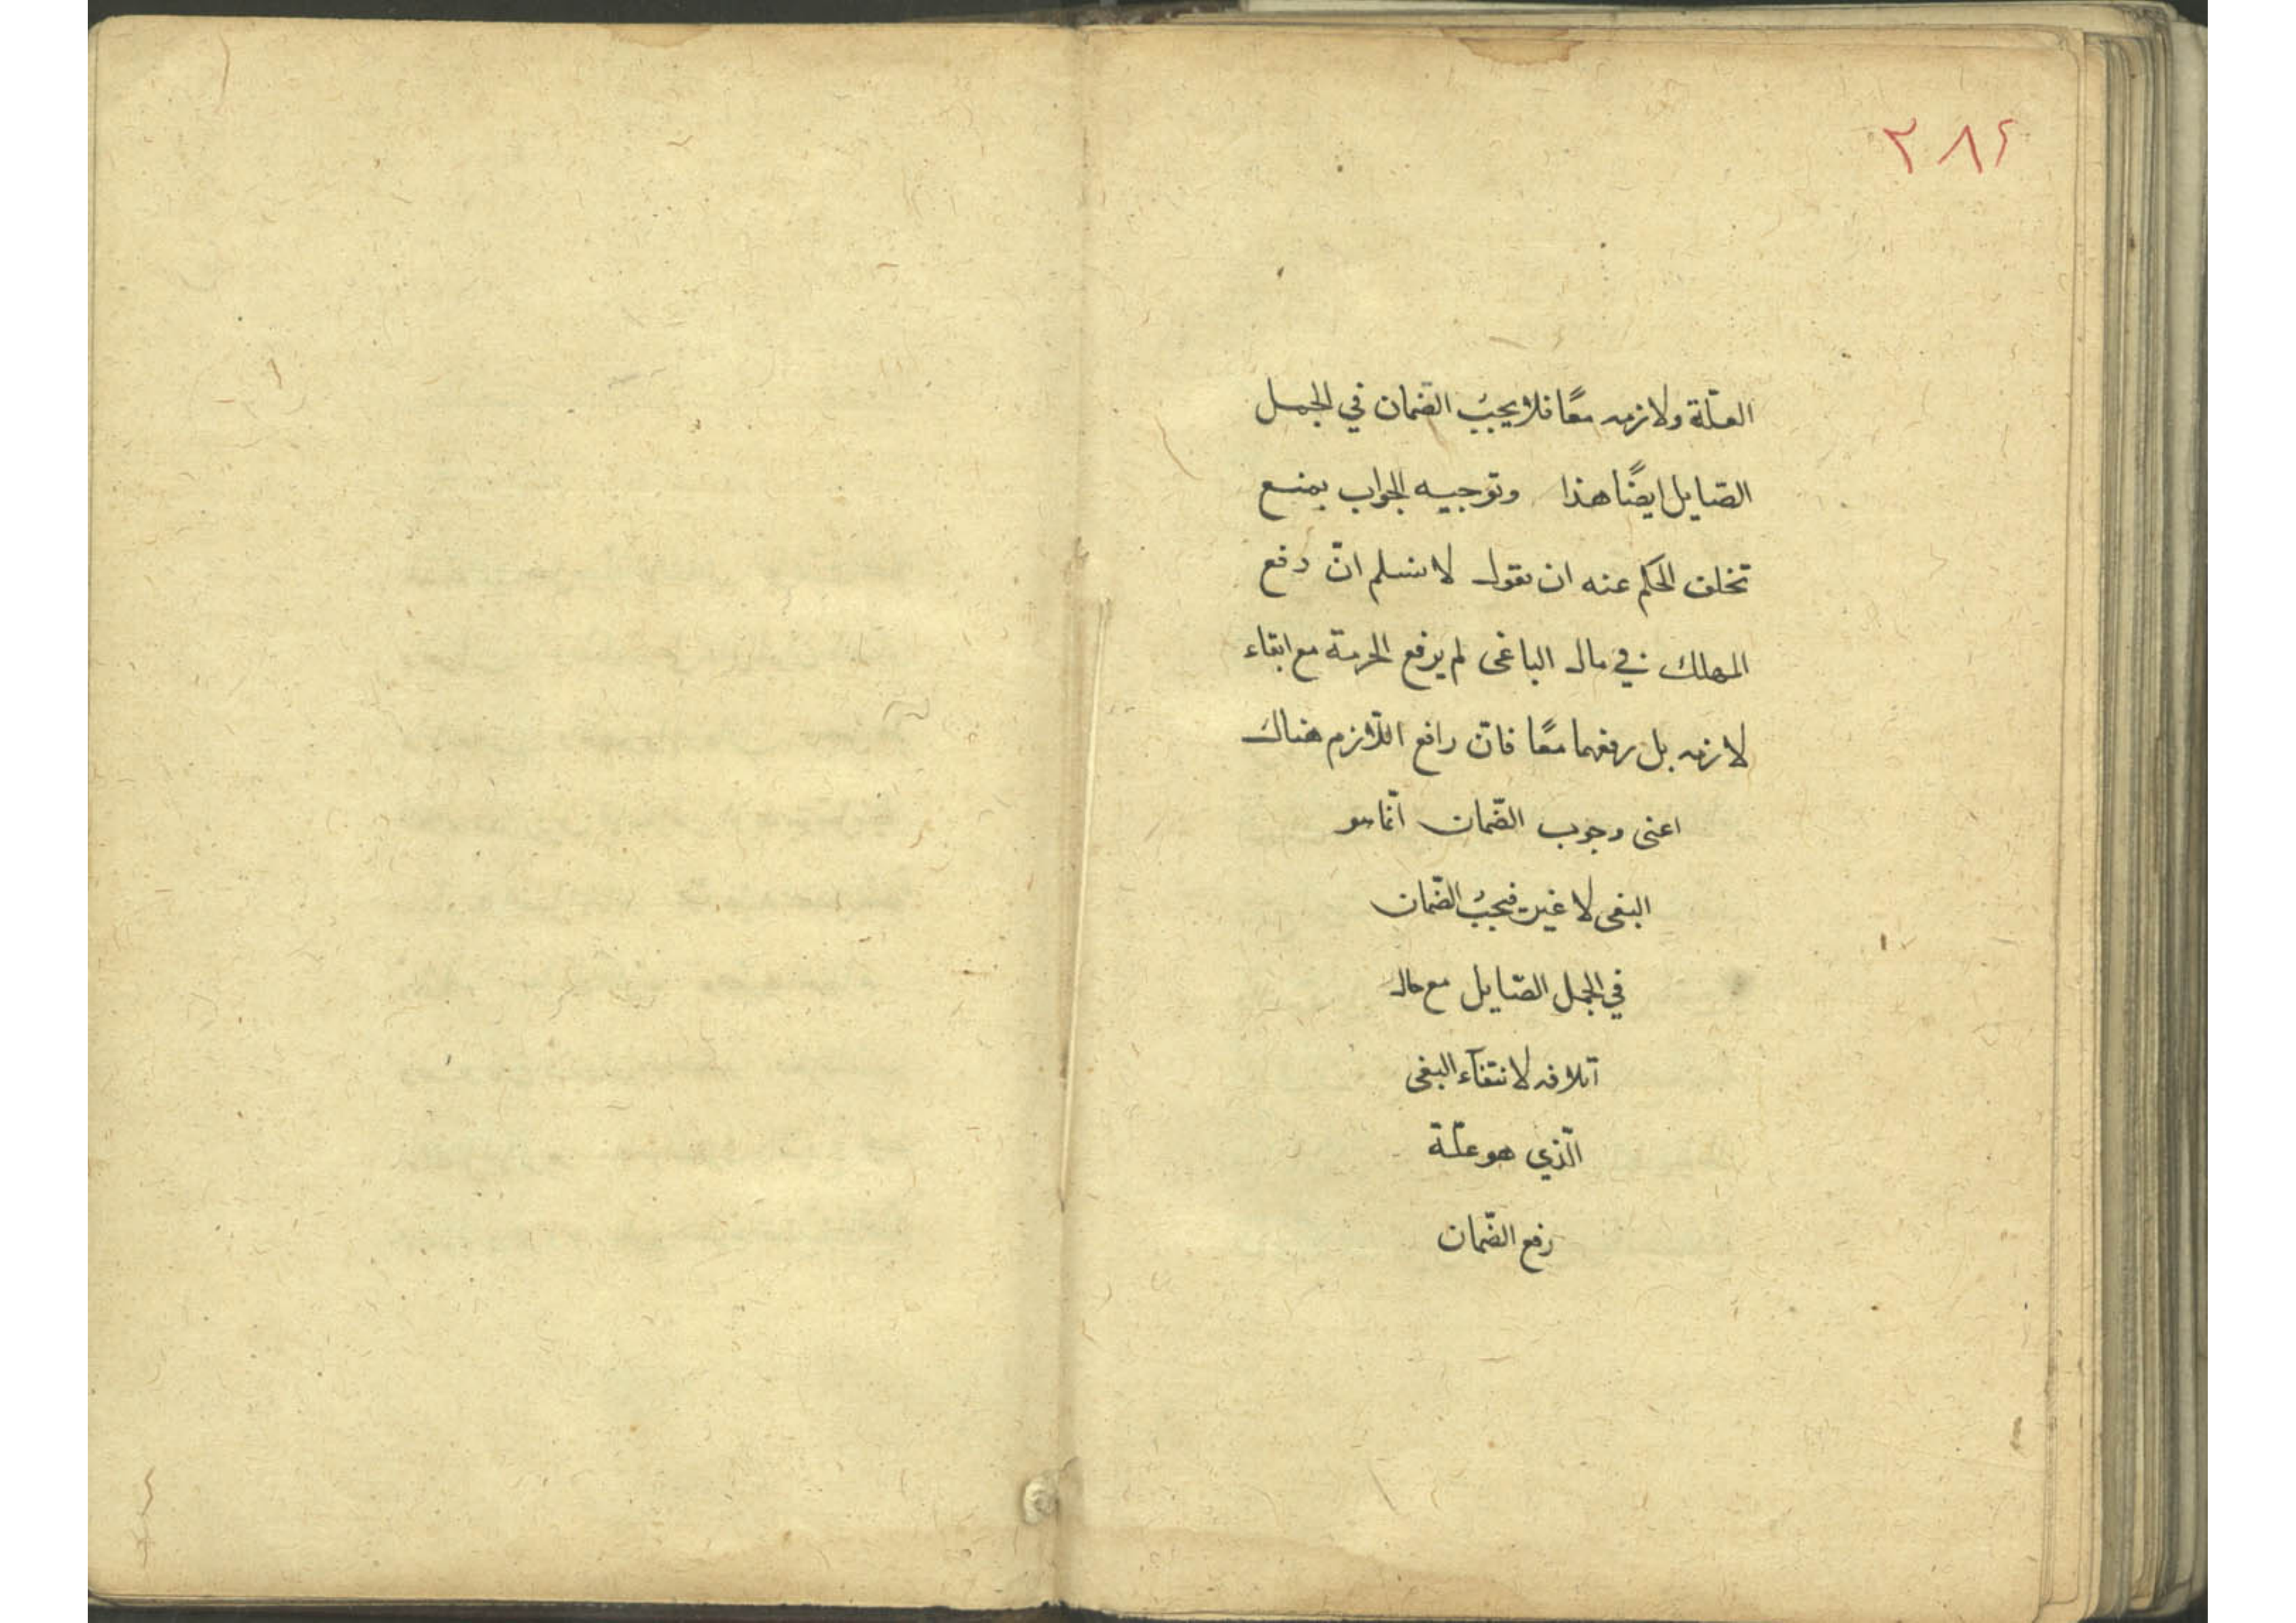 ٢٨٤
العلّة ولازمه معًا فلا يجبُ الضمان في الجمل
الصّايل ايضًا هذا وتوجيه الجواب بمنع
تخلف الحكم عنه ان نقول لا نسلم انّ دفع
المهلك في مال الباغى لم يرفع الحرمة مع ابقاء
لازمه بل رفعهما معًا فانّ رافع اللّازم هناك
اعنى وجوب الضّمان انّما هو
البغى لا غير فيجبُ الضّمان
في الجمل الصّايل مع حال
اتلافه لانتفآء البغى
الّذي هو علّة
رفع الضّمان